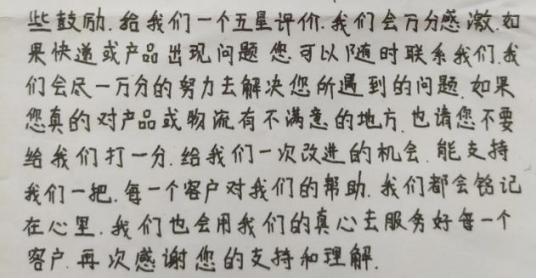 些鼓励.给我们一个五星评价.我们会万分感激.如
果快递或产品出现问题 您可以随时联系我们.我
们会尽一万分的努力去解决您所遇到的问题.如果
您真的对产品或物流有不满意的地方.也请您不要
给我们打一分.给我们一次改进的机会.能支持
我们一把.每一个客户对我们的帮助.我们都会铭记
在心里.我们也会用我们的真心去服务好每一个
客户.再次感谢您的支持和理解.